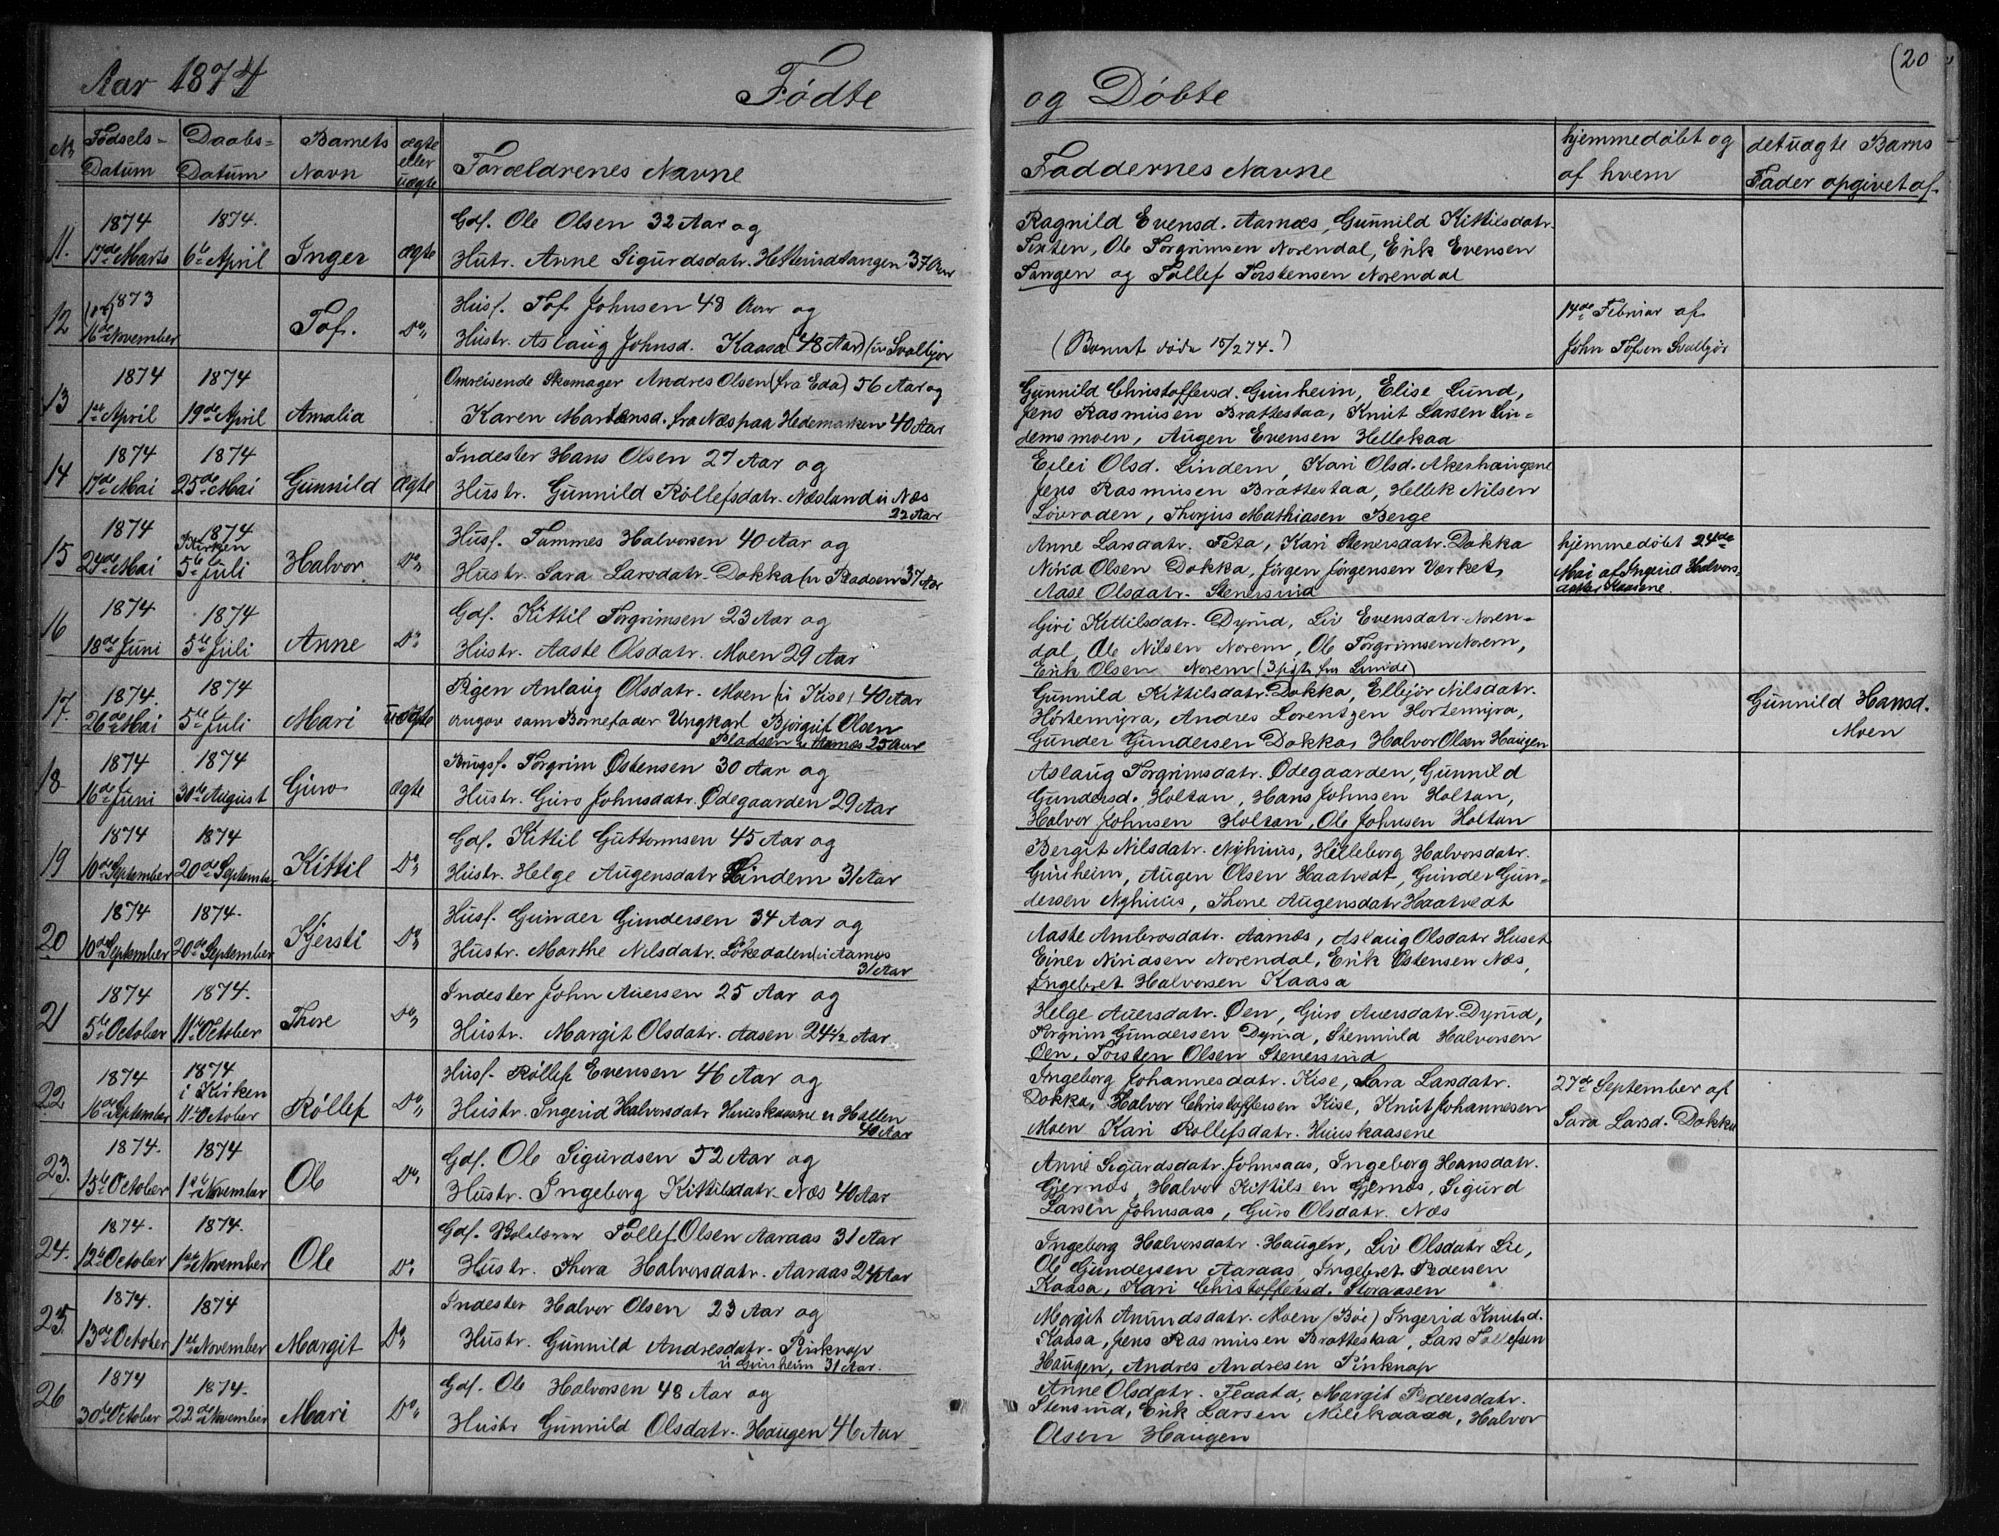 (20
Aar 1874
Fødte
og Døbte
No
Fødsels-
Datum
Daabs-
Datum
Barnets
Navn
ægte
eller
uægte
Forældrenes Navne
Faddernes Navne
hjemmedøbt og
af hvem
det uægte Barns
Fader opgivet af
11.
1874
17de Marts
1874.
6te April
Inger
ægte
Gdf. Ole Olsen 32 Aar og
Hutr. Anne Sigurdsdatr. 37 Aar
Ragnild Evensd. Aarnæs, Gunnild Kittilsdatr.
Ole Torgrimsen Norendal, Erik Evensen
Tangen og Tollef Torstensen Norendal
12
1873
16de November
Tof.
Do
Husf. Tof Johnsen 48 Aar og
Hustr. Aslaug Johnsd. Kaasa (48 Aar) (u Svalbjør
(Barnet døde 15/2 74.)
14de Februar af
John Tofsen Svalbjør
13
1874
1ste April
1874
19de April
Amalia
Omreisende Skomager Andres Olsen (fra Eda) 56 Aar og
Karen Martensd. fra Næs paa Hedemarken 40 Aar
Gunnild Christoffersd. Gunheim, Elise Lund,
Jens Rasmusen Brattestaa, Knut Larsen Lin-
demsmoen, Augen Evensen Hellekaa
14
1874
17de Mai
1874
25de Mai
Gunnild
Ægte
Inderster Hans Olsen 27 Aar og
Hustr. Gunnild Røllefsdatr. Næsland u Næs
22 Aar
Eilei Olsd. Lindem, Kari Olsd. Akerhaugene
Jens Rasmusen Brattestaa, Hellek Nilsen
Thorjus Mathiasen Berge
15
1874
24de Mai
1874
Kirken
5te Juli
Halvor
Do
Husf. Tammes Halvorsen 40 Aar og
Hustr. Sara Larsdatr. Dokka (u Pladsen 37 Aar
Anne Larsdatr. Teta, Kari Stenersdatr. Dokka
Nirid Olsen Dokka, Jörgen Jörgensen Værket,
Aase Olsdatr. Stenersund
hjemmedøbt 24de
Mai af Ingrid Halvors-
datter Kaasene.
16
1874
18de Juni
1874
5te Juli
Anne
Do
Gdf. Kittil Torgrimsen 23 Aar og
Hustr. Aaste Olsdatr. Moen 29 Aar
Giri Kittilsdatr. Dyrud, Liv Evensdatr. Noren-
dal, Ole Nilsen Norem, Ole Torgrimsen Norem,
Erik Olsen Norem
17.
1874.
26de Mai
1874
5te Juli
Mari
uægte
Pigen Anlaug Olsdatr. Moen (u Kise) 40 Aar
angov som Barnefader Ungkarl Bjørguf Olsen
Pladsen u Aarnæs 25 Aar
Gunnild Kittilsdatr. Dokka, Ellbjør Nilsdatr.
Hørtemyra, Andres Lorentzen Hortemyra,
Gunder Gundersen Dokka, Halvor Olsen Haugen
Gunnild Hansd.
Moen
18
1874
16de Juni
1874
30te August
Guro
Ægte
Brugsf. Torgrim Østensen 30 Aar og
Hustr. Guro Johnsdatr. Ødegaarden 29 Aar
Aslaug Torgrimsdatr. Ødegaarden, Gunnild
Gundersd. Holtan, Hans Johnsen Holtan,
Halvor Johnsen Holtan, Ole Johnsen Holtan
19
1874
10de September
1874
20de September
Kittil
Do
Gdf. Kittil Guttormsen 45 Aar og
Hustr. Helge Augensdatr Lindem 31 Aar
Bergit Nilsdatr. Nyhuus, Hilleborg Halvorsdatr.
Gunheim, Augen Olsen Haatvedt, Gunder Gun-
dersen Nyhuus, Thone Augensdatr Haatvedt
20
1874
10de September
1874.
20de September
Kjersti
Do
Husf. Gunder Gundersen 34 Aar og
Hustr. Marthe Nilsdatr. Løkedalen (u Aarnæs
31 Aar
Aaste Ambrosdatr. Aarnæs, Aslaug Olsdatr Huset
Einer Niridsen Norendal, Erik Østensen Næs,
Ingebret Halvorsen Kaasa
21
1874
5te October
1874.
11te October
Thore
Do
Indester John Auersen 25 Aar og
Hustr. Margit Olsdatr. Aasen 24 1/2 Aar
Helge Auersdatr. Øen, Guro Auersdatr. Dyrud,
Torgrim Gundersen Dyrud, Halvorsen
Øen, Torsten Olsen Stenersund
22
1874
16de September
1874
i Kirken
11te October
Røllef
Do
Husf. Røllef Evensen 46 Aar og
Hustr. Ingerid Halvorsdatr Huuskaasene u Hallen
40 Aar
Ingeborg Johannesdatr. Kise, Sara Larsdatr.
Dokka, Halvor Christoffersen Kise, Knut Johannesen
Moen Kari Rollefsdatr. Huuskaasene
27de September af
Sara Larsd. Dokka
23.
1874.
15te October
1874
1ste November
Ole
Do
Gdf. Ole Sigurdsen 52 Aar og
Hustr. Ingeborg Kittilsdatr. Næs 40 Aar
Anne Sigurdsdatr. Johnsaas, Ingeborg Hansdatr.
Gjernæs, Halvor Kittilsen Gjernæs, Sigurd
Larsen Johnsaas, Guro Olsdatr. Næs
24.
1874.
12te October
1874.
1ste November
Ole
Do
Gdf. Tollef Olsen Aaraas 31 Aar
Hustr. Thora Halvorsdatr. Aaraas 24 Aar
Ingeborg Halvorsdatr. Haugen, Liv Olsdatr Lie,
Ole Gundersen Aaraas, Ingebret Pedersen
Kaasa, Kari Christoffersd. Storaasen
25
1874.
13de October
1874
1ste November
Margit
Do
Indester Halvor Olsen 23 Aar og
Hustr. Gunnild Andresdatr. Pinknap
u Gunheim 31 Aar.
Margit Amundsdatr. Moen (Bøe) Ingerid Knutsd.
Kaasa, Jens Rasmusen Brattestaa, Lars Tollefsen
Haugen, Andres Andresen Pinknap
26
1874
30te October
1874.
22de November
Mari
Do
Gdf. Ole Halvorsen 48 Aar og
Hustr Gunnild Olsdatr. Haugen 46 Aar
Anne Olsdatr. Flaata, Margit Pedersdatr.
Stensund, Erik Larsen Milekaasa, Halvor
Olsen Haugen